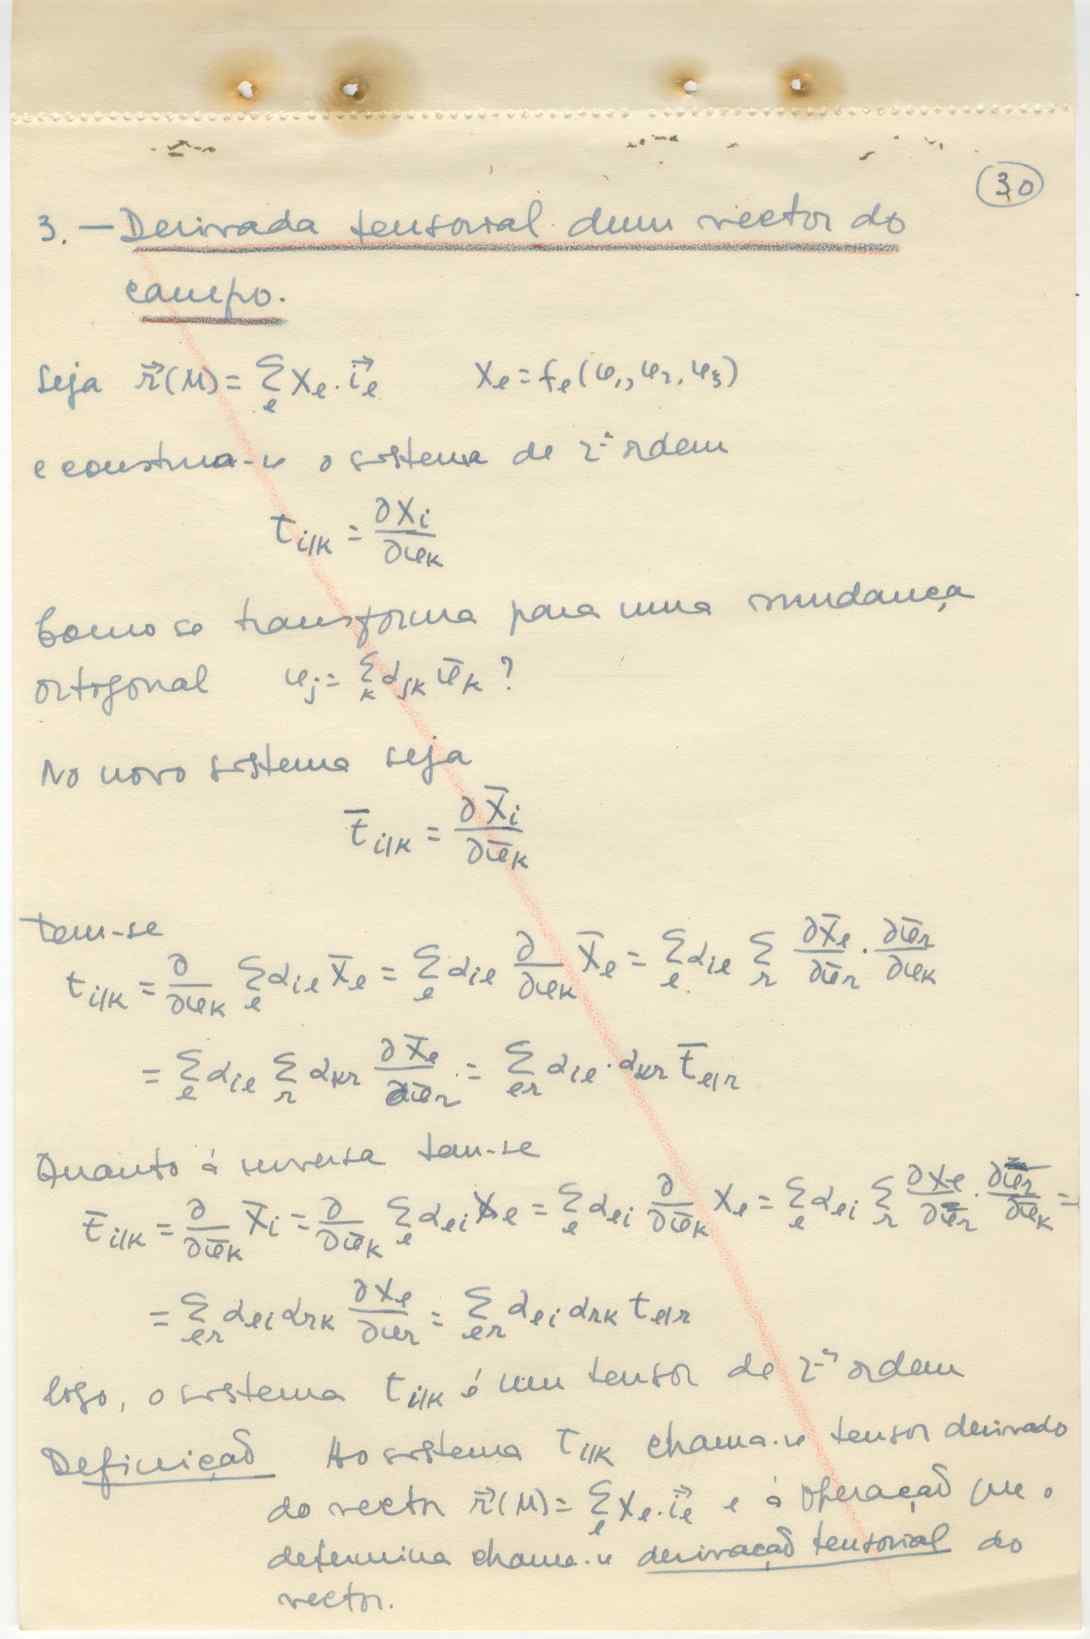 30
3. — Derivada tensorial dum vector do
campo.
Seja r⃗(M) = Σ_e X_e · i⃗_e X_e = f_e(φ₁, φ₂, φ₃)
e construa-se o sistema de 2ª ordem
t_{i|k} = ∂X_i/∂φ_k
Como se transforma para uma mudança
ortogonal φ_j = Σ_k α_{jk} φ̄_k ?
No novo sistema seja
t̄_{i|k} = ∂X̄_i/∂φ̄_k
tem-se
t_{i|k} = ∂/∂φ_k Σ_e α_{ie} X̄_e = Σ_e α_{ie} ∂/∂φ_k X̄_e = Σ_e α_{ie} Σ_r ∂X̄_e/∂φ̄_r · ∂φ̄_r/∂φ_k
= Σ_e α_{ie} Σ_r α_{kr} ∂X̄_e/∂φ̄_r = Σ_{er} α_{ie} · α_{kr} t̄_{e|r}
Quanto à inversa tem-se
t̄_{i|k} = ∂/∂φ̄_k X̄_i = ∂/∂φ̄_k Σ_e α_{ei} X_e = Σ_e α_{ei} ∂/∂φ̄_k X_e = Σ_e α_{ei} Σ_r ∂X_e/∂φ_r · ∂φ_r/∂φ̄_k =
= Σ_{er} α_{ei} α_{rk} ∂X_e/∂φ_r = Σ_{er} α_{ei} α_{rk} t_{e|r}
Logo, o sistema t_{i|k} é um tensor de 2ª ordem
Definição Ao sistema t_{i|k} chama-se tensor derivado
do vector r⃗(M) = Σ_e X_e · i⃗_e e à operação que o
determina chama-se derivação tensorial do
vector.